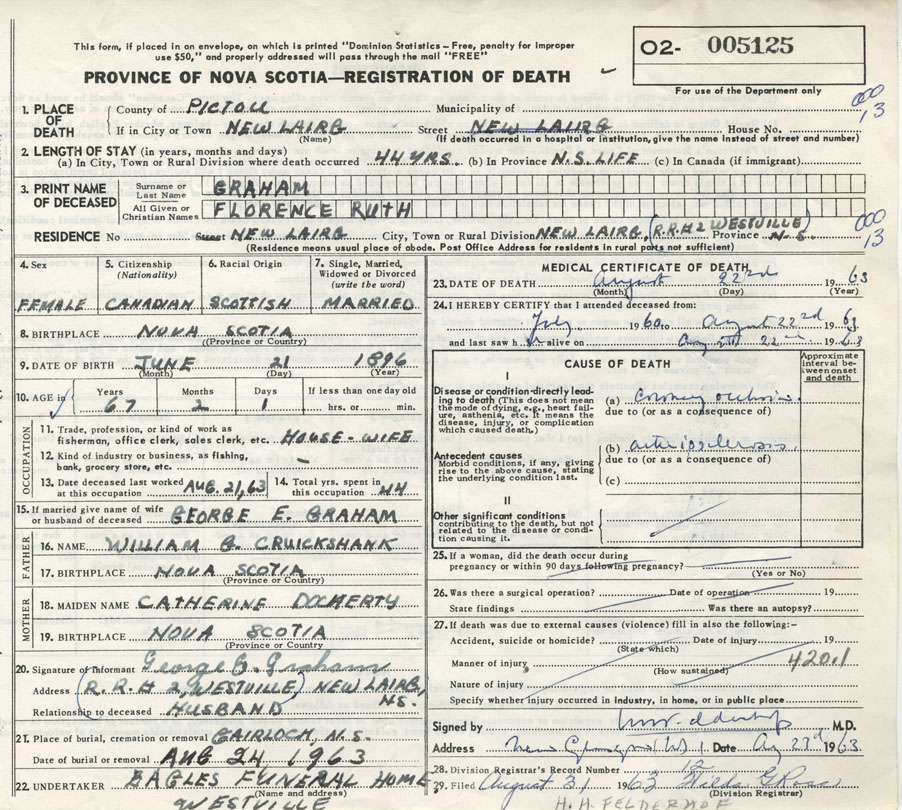 This form, if placed in an envelope, on which is printed "Dominion Statistics – Free, penalty for improper
use $50," and properly addressed will pass through the mail "FREE"
PROVINCE OF NOVA SCOTIA—REGISTRATION OF DEATH
02- 005125
For use of the Department only
000
13
1. PLACE OF DEATH
County of PICTOU Municipality of
If in City or Town NEW LAIRG Street NEW LAIRG House No.
(Name) (If death occurred in a hospital or institution, give the name instead of street and number)
2. LENGTH OF STAY (in years, months and days)
(a) In City, Town or Rural Division where death occurred 44 YRS. (b) In Province N.S. LIFE (c) In Canada (if immigrant)
3. PRINT NAME OF DECEASED
Surname or Last Name GRAHAM
All Given or Christian Names FLORENCE RUTH
RESIDENCE No Street NEW LAIRG City, Town or Rural Division NEW LAIRG, (R.R.# 2 WESTVILLE) Province N.S.
(Residence means usual place of abode. Post Office Address for residents in rural parts not sufficient)
000
13
4. Sex FEMALE
5. Citizenship (Nationality) CANADIAN
6. Racial Origin SCOTTISH
7. Single, Married, Widowed or Divorced (write the word) MARRIED
8. BIRTHPLACE NOVA SCOTIA
(Province or Country)
9. DATE OF BIRTH JUNE 21 1896
(Month) (Day) (Year)
10. AGE in Years 67 Months 2 Days 1 If less than one day old hrs. or min.
OCCUPATION
11. Trade, profession, or kind of work as fisherman, office clerk, sales clerk, etc. HOUSE-WIFE
12. Kind of industry or business, as fishing, bank, grocery store, etc. –
13. Date deceased last worked at this occupation AUG. 21, 63 14. Total yrs. spent in this occupation 44
15. If married give name of wife or husband of deceased GEORGE E. GRAHAM
FATHER
16. NAME WILLIAM G. CRUICKSHANK
17. BIRTHPLACE NOVA SCOTIA
(Province or Country)
MOTHER
18. MAIDEN NAME CATHERINE DOCHERTY
19. BIRTHPLACE NOVA SCOTIA
(Province or Country)
20. Signature of Informant George E. Graham
Address (R.R.# 2, WESTVILLE) NEW LAIRG, N.S.
Relationship to deceased HUSBAND
21. Place of burial, cremation or removal GAIRLOCH, N.S.
Date of burial or removal AUG 24, 1963
22. UNDERTAKER EAGLES FUNERAL HOME
(Name and address)
WESTVILLE
MEDICAL CERTIFICATE OF DEATH
23. DATE OF DEATH August 22nd 1963
(Month) (Day) (Year)
24. I HEREBY CERTIFY that I attended deceased from:
July 1960 to August 22nd 1963
and last saw h alive on August 22nd 1963
CAUSE OF DEATH
Approximate interval between onset and death
I
Disease or condition directly leading to death (This does not mean the mode of dying, e.g., heart failure, asthenia, etc. It means the disease, injury, or complication which caused death.)
(a) coronary occlusion
due to (or as a consequence of)
Antecedent causes
Morbid conditions, if any, giving rise to the above cause, stating the underlying condition last.
(b) arteriosclerosis
due to (or as a consequence of)
(c)
II
Other significant conditions contributing to the death, but not related to the disease or condition causing it.
25. If a woman, did the death occur during pregnancy or within 90 days following pregnancy?
(Yes or No)
26. Was there a surgical operation? Date of operation 19
State findings Was there an autopsy?
27. If death was due to external causes (violence) fill in also the following:–
Accident, suicide or homicide? Date of injury 19
(State which)
Manner of injury
(How sustained) 420.1
Nature of injury
Specify whether injury occurred in industry, in home, or in public place
Signed by M.D.
Address New Date Aug 23rd 1963
28. Division Registrar's Record Number 12
29. Filed August 31 1963 Hilda G
(Division Registrar)
H. H. FELDERHOF